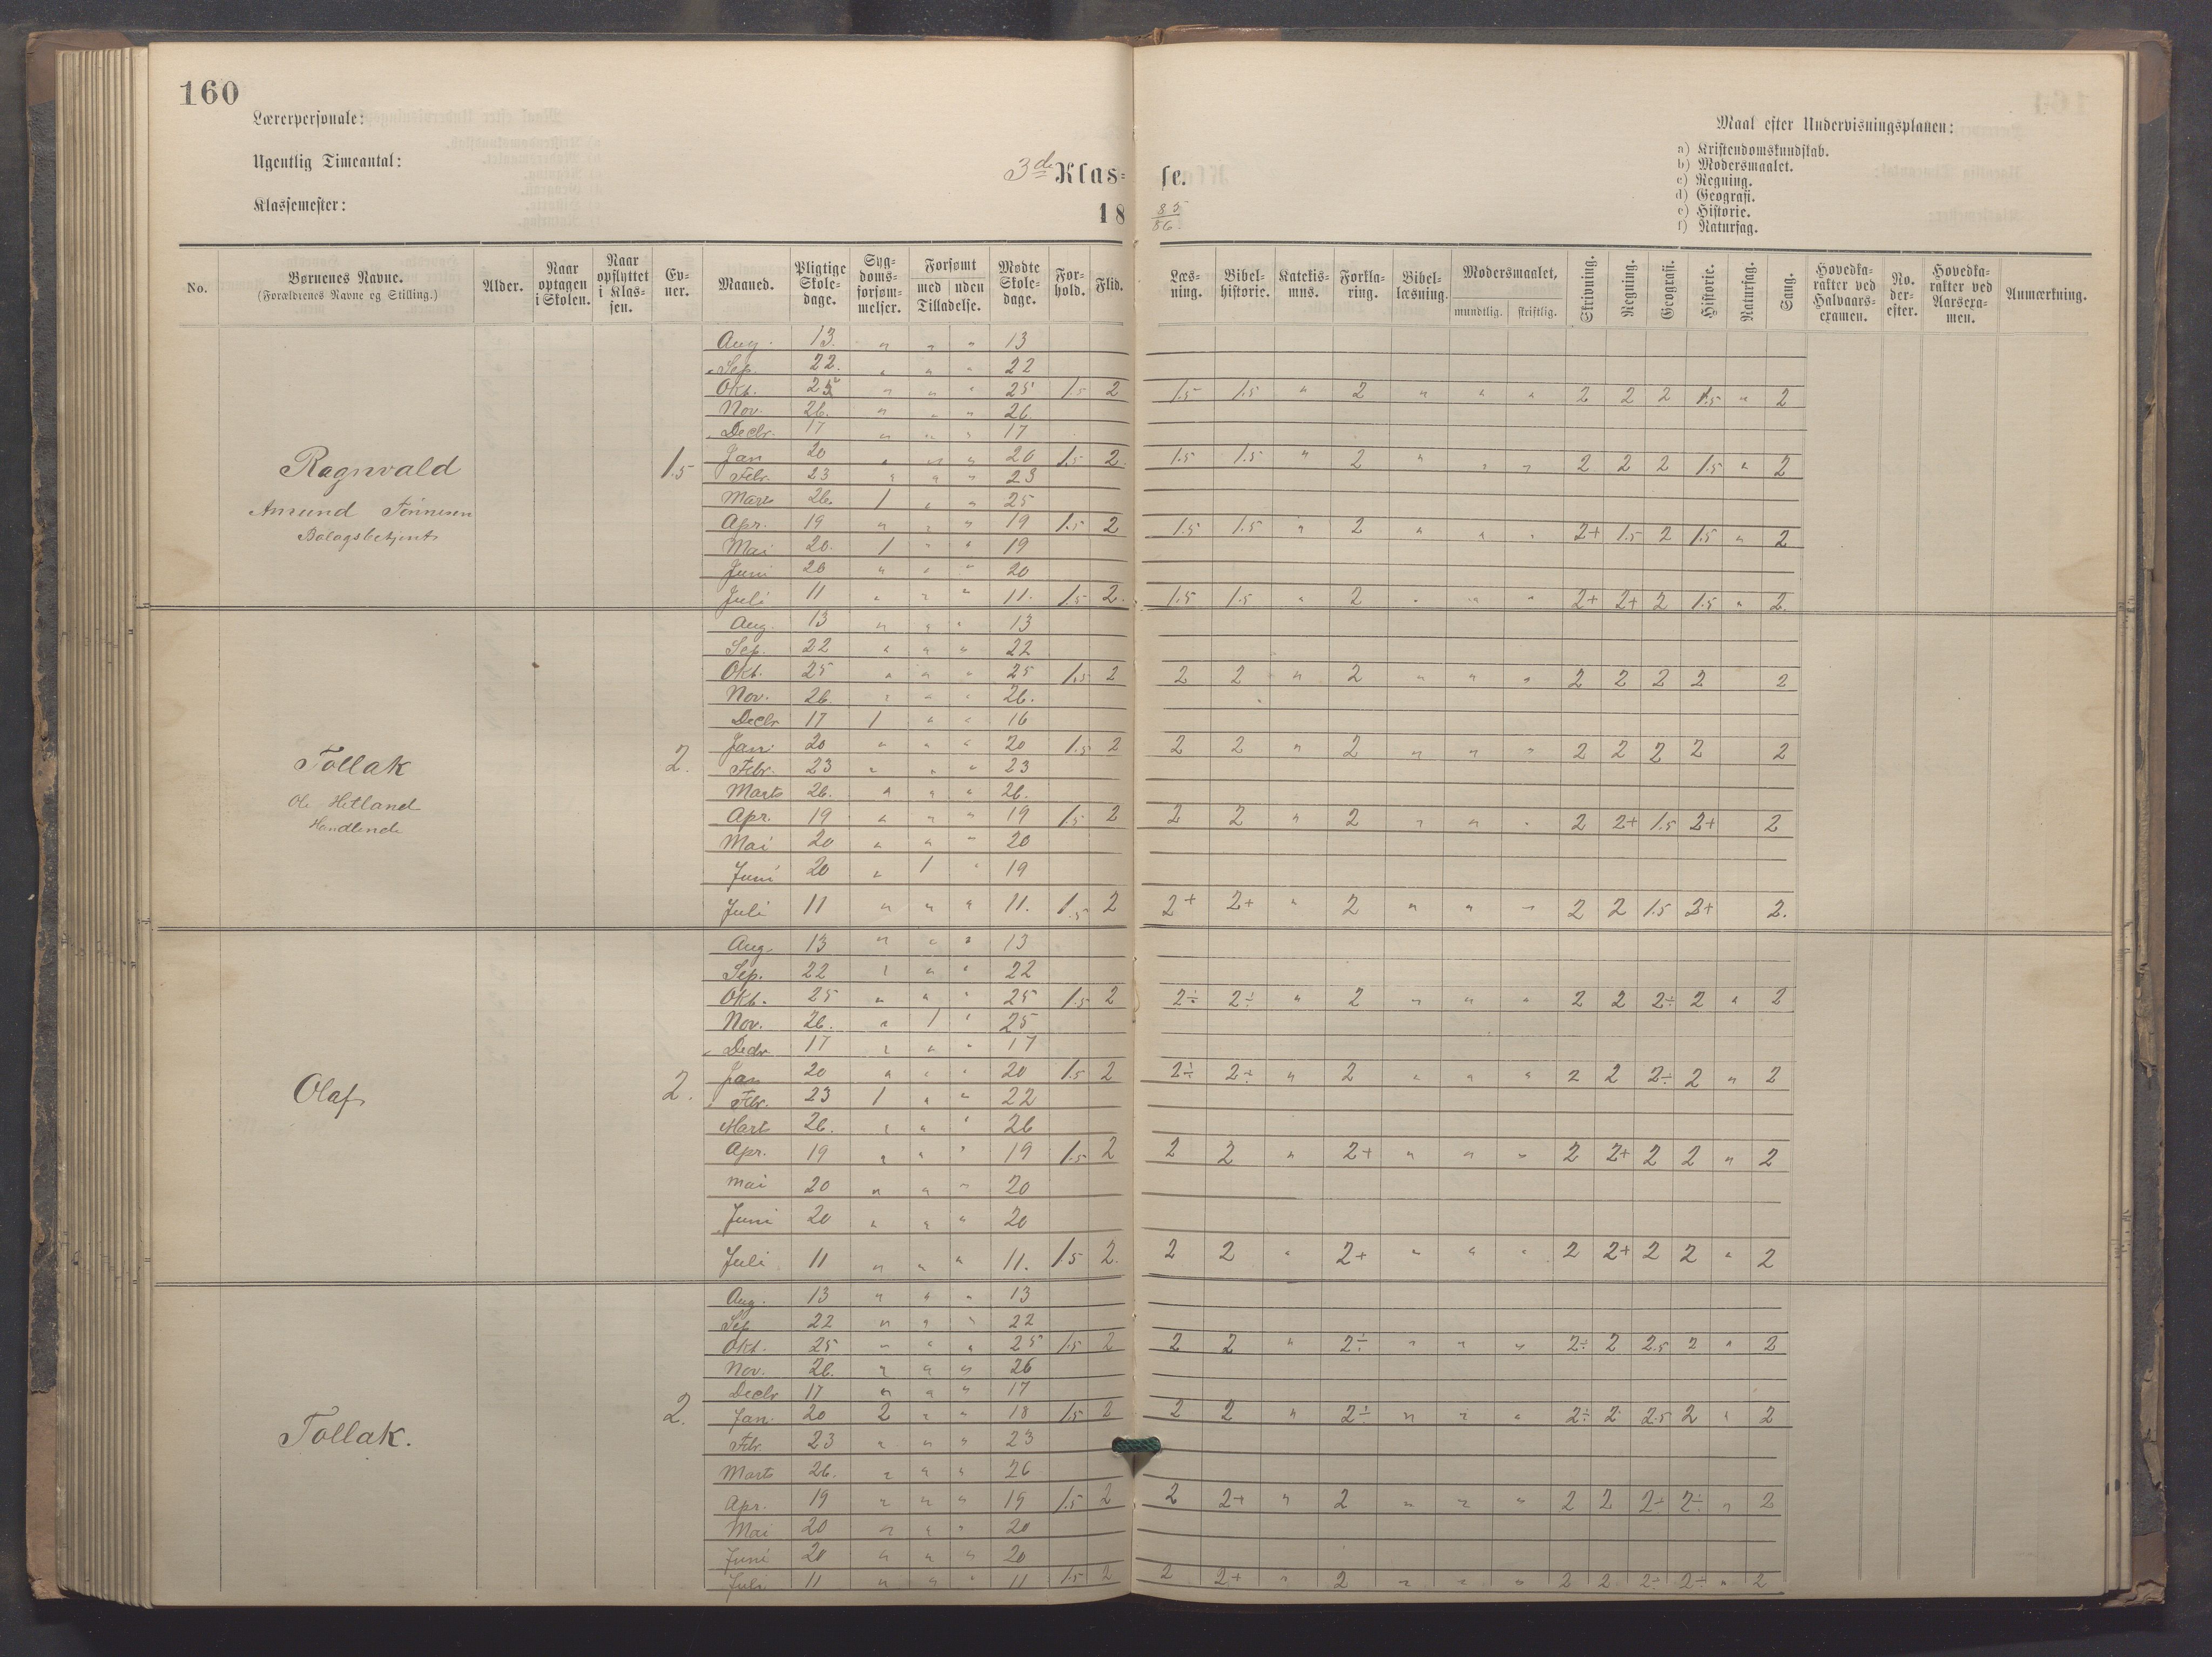 160
Lærerpersonale:
Ugentlig Timeantal:
Klassemester:
3de Klas- se.
18 85/86
Maal efter Undervisningsplanen:
a) Kristendomskundskab.
b) Modersmaalet.
c) Regning.
d) Geografi.
e) Historie.
f) Naturfag.
No. | Børnenes Navne. (Forældrenes Navne og Stilling.) | Alder. | Naar optagen i Skolen. | Naar opflyttet i Klassen. | Evner. | Maaned. | Pligtige Skoledage. | Sygdomsforsømmelser. | Forsømt med uden Tilladelse. | Mødte Skoledage. | Forhold. | Flid. | Læsning. | Bibelhistorie. | Katekismus. | Forklaring. | Bibellæsning. | Modersmaalet, mundtlig. skriftlig. | Skrivning. | Regning. | Geografi. | Historie. | Naturfag. | Sang. | Hovedkarakter ved Halvaarsexamen. | No. derefter. | Hovedkarakter ved Aarsexamen. | Anmærkning.
Ragnvald
Amund Tønnesen
Bolagsbetjent
1.5
Aug. 13. " " " 13
Sep. 22. " " " 22
Okt. 25 " " " 25 1.5 2 1.5 1.5 " 2 " " " 2 2 2 1.5 " 2
Nov. 26. " " " 26
Decbr. 17 " " " 17
Jan 20 " " " 20 1.5 2. 1.5 1.5 " 2 " " " 2 2 2 1.5 " 2
Febr. 23 " " " 23
Marts 26. 1 " " 25
Apr. 19 " " " 19 1.5 2 1.5 1.5 " 2 " " " 2+ 1.5 2 1.5 " 2
Mai 20. 1 " " 19
Juni 20 " " " 20
Juli 11 " " " 11. 1.5 2. 1.5 1.5 " 2 " " " 2+ 2+ 2 1.5 " 2.
Tollak
Ole Hetland
Handlende
2.
Aug. 13 " " " 13
Sep. 22 " " " 22
Okt. 25 " " " 25 1.5 2 2 2 " 2 " " " 2 2 2 2 2
Nov. 26. " " " 26.
Decbr 17 1 " " 16
Jan. 20 " " " 20 1.5 2 2 2 " 2 " " " 2 2 2 2 2
Febr. 23 " " " 23
Marts 26. " " " 26.
Apr. 19 " " " 19 1.5 2 2 2 " 2 " " " 2 2+ 1.5 2+ 2
Mai 20 " " " 20
Juni 20 " 1 " 19
Juli 11 " " " 11. 1.5 2 2+ 2+ " 2 " " " 2 2 1.5 2+ 2.
Olaf
2.
Aug. 13 " " " 13
Sep. 22 " " " 22
Okt. 25 " " " 25 1.5 2 2÷ 2÷ " 2 " " " 2 2 2÷ 2 " 2
Nov. 26. " 1 " 25
Decbr 17 " " " 17
Jan 20 " " " 20 1.5 2 2÷ 2÷ " 2 " " " 2 2 2÷ 2 " 2
Febr. 23 1 " " 22
Mart 26. " " " 26
Apr. 19 " " " 19 1.5 2 2 2 " 2+ " " " 2 2+ 2 2 " 2
Mai 20 " " " 20
Juni 20 " " " 20
Juli 11 " " " 11. 1.5 2. 2 2 " 2+ " " " 2 2+ 2 2 " 2
Tollak.
2.
Aug. 13 " " " 13
Sep 22 " " " 22
Okt. 25 " " " 25 1.5 2 2 2 " 2÷ " " " 2÷ 2 2.5 2 " 2
Nov. 26. " " " 26
Decbr 17 " " " 17
Jan. 20 2 " " 18 1.5 2 2 2 " 2÷ " " " 2÷ 2 2.5 2 " 2
Febr. 23 " " " 23
Marts 26. " " " 26
Apr. 19 " " " 19 1.5 2 2 2+ " 2 " " " 2 2 2÷ 2÷ " 2
Mai 20 " " " 20
Juni 20 " " " 20
Juli 11 " " " 11 1.5 2 2 2+ " 2 " " " 2 2 2÷ 2÷ " 2